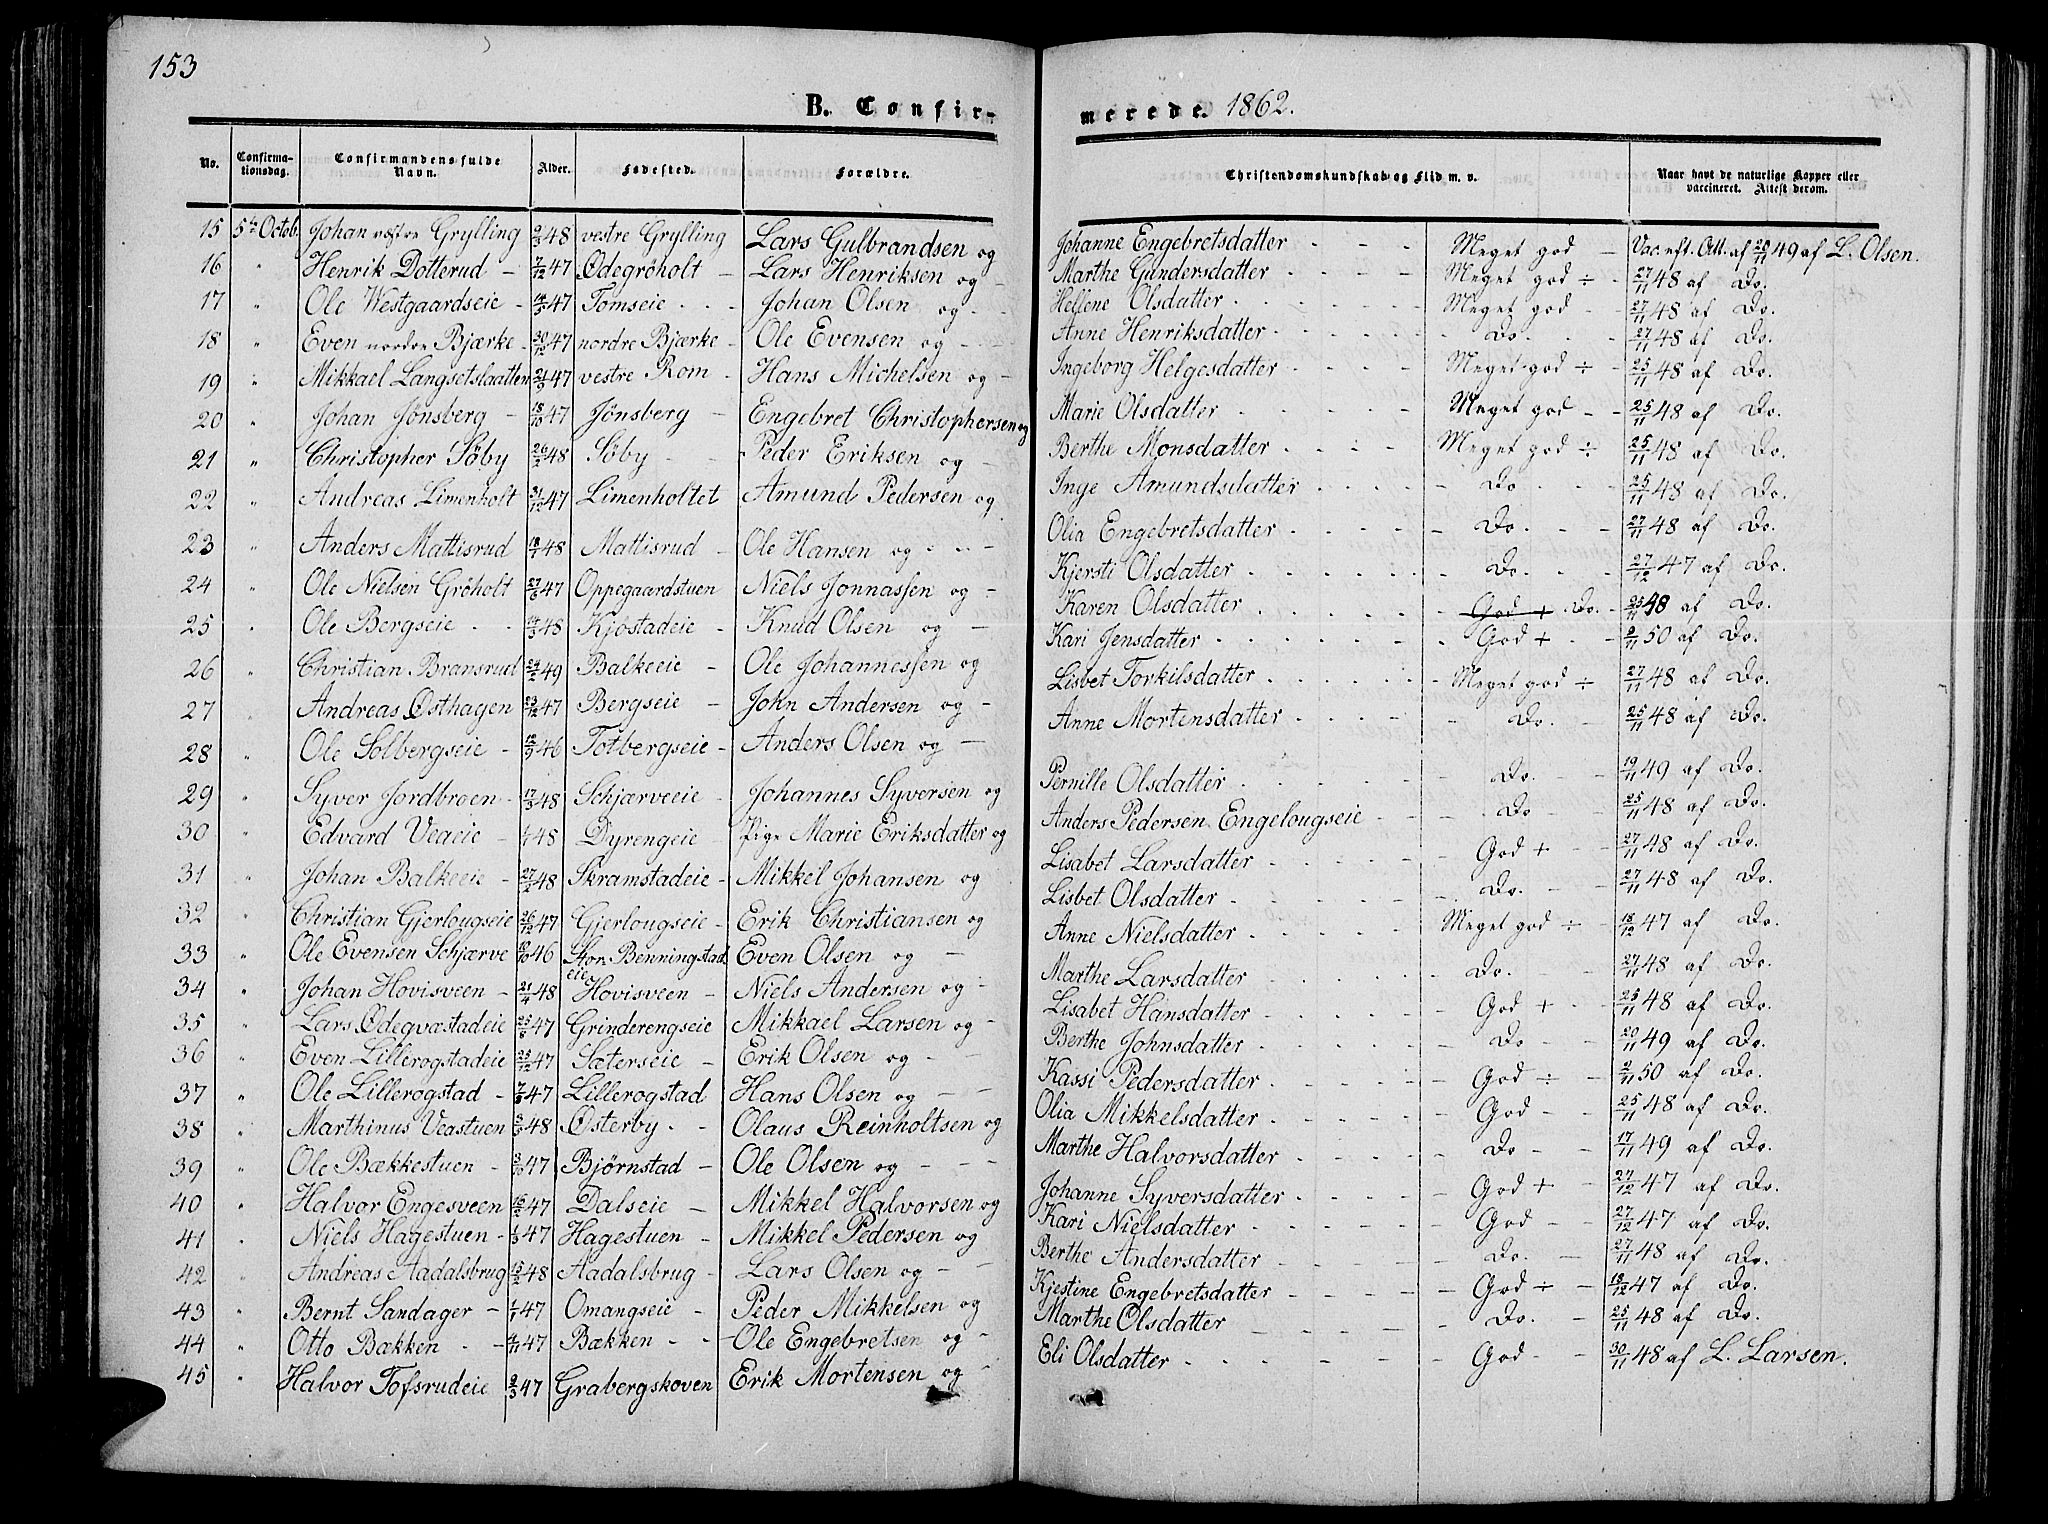 153
B. Confirmerede. 1862.
No. Confirmationsdag. Confirmandens fulde Navn. Alder. Fødested. Forældre. Christendomskundskab og Flid m. v. Naar havt de naturlige Kopper eller vaccineret. Attest derom.
15 5te Octob. Johan vestre Grylling 2/3 48 vestre Grylling Lars Gulbrandsen og Johanne Engebretsdatter - - - Meget god - Vac. eft. Att. af 28/11 49 af L. Olsen.
16 " Henrik Dotterud - 7/12 47 Ødegröholt - Lars Henriksen og - Marthe Gundersdatter - - - - Meget god ÷ - 27/11 48 af Do.
17 " Ole Westgaardseie - 14/5 47 Tomseie - - - Johan Olsen og - - Hellene Olsdatter - - - - - Meget god - - 27/11 48 af Do.
18 " Even nordre Bjærke - 30/12 47 nordre Bjærke - Ole Evensen og - - Anne Henriksdatter - - - - Do. - - - 27/11 48 af Do.
19 " Mikkael Langsetslaatten 21/9 47 vestre Rom - Hans Michelsen og - Ingeborg Helgesdatter - - - - Meget god ÷ - 25/11 48 af Do.
20 " Johan Jönsberg - 18/10 47 Jönsberg - Engebret Christophersen og Marie Olsdatter - - - - - Meget god - - 25/11 48 af Do.
21 " Christopher Söby 26/2 48 Söby - - Peder Eriksen og - Berthe Monsdatter - - - - Meget god ÷ 25/11 48 af Do.
22 " Andreas Limenholt 31/12 47 Limenholtet Amund Pedersen og Inge Amundsdatter - - - - - Do - - - 25/11 48 af Do.
23 " Anders Mattisrud 18/1 48 Mattisrud - Ole Hansen og - - - Olia Engebretsdatter - - - - - Do. - - 27/11 48 af Do.
24 " Ole Nielsen Gröholt 27/6 47 Oppegaardstuen Niels Jonnassen og - Kjersti Olsdatter - - - - - - Do. - - 27/12 47 af Do.
25 " Ole Bergseie - - 14/3 48 Kjöstadeie - Knud Olsen og - Karen Olsdatter - - - - - God + Do. - 25/11 48 af Do.
26 " Christian Bransrud 24/2 49 Balkeeie - Ole Johannessen og Kari Jensdatter - - - - - - God + - - 2/11 50 af Do.
27 " Andreas Østhagen 23/12 47 Bergseie - John Andersen og - Lisbet Torkilsdatter - - - - - Meget god ÷ 27/11 48 af Do.
28 " Ole Solbergseie - 12/9 46 Totbergseie - Anders Olsen og - Anne Mortensdatter - - - - - Do. - 25/11 48 af Do.
29 " Syver Jordbroen - 17/3 48 Schjærveeie - Johannes Syversen og Pernille Olsdatter - - - - - Do. - - 19/11 49 af Do.
30 " Edvard Veaeie - 48 Dyrengeie - Pige Marie Eriksdatter og Anders Pedersen Engelougseie - - - Do - - 25/11 48 af Do.
31 " Johan Balkeeie - 27/2 48 Skramstadeie - Mikkel Johansen og Lisabet Larsdatter - - - - - God + - 27/11 48 af Do.
32 " Christian Gjerlougseie 26/12 47 Gjerlougseie - Erik Christiansen og Lisbet Olsdatter - - - - - - Do. - - 27/11 48 af Do.
33 " Ole Evensen Schjærve 12/10 46 Stor Benningstadeie Even Olsen og - Anne Nielsdatter - - - - - Meget god ÷ - 18/12 47 af Do.
34 " Johan Hovisveen - 21/4 48 Hovisveen - Niels Andersen og - Marthe Larsdatter - - - - - Do. - - 27/11 48 af Do.
35 " Lars Ødegvæstadeie 25/6 47 Grinderengseie Mikkael Larsen og - Lisabet Hansdatter - - - - - God + - - 25/11 48 af Do.
36 " Even Lillerogstadeie 25/12 47 Sæterseie - Erik Olsen og - - Berthe Johnsdatter - - - - - Do - - 20/11 49 af Do.
37 " Ole Lillerogstad - 7/6 47 Lillerogstad Hans Olsen og - - Kassi Pedersdatter - - - - - God ÷ - 2/11 50 af Do.
38 " Marthinus Veastuen 3/3 48 Østerby - - Olaus Reinholtsen og Olia Mikkelsdatter - - - - - God - - 25/11 48 af Do.
39 " Ole Bækkestuen - 3/10 47 Bjørnstad - Ole Olsen og - - - Marthe Halvorsdatter - - - - - Do - - 17/11 49 af Do.
40 " Halvor Engesveen 16/2 47 Dalseie - Mikkel Halvorsen og Johanne Syversdatter - - - - - God + - 27/12 47 af Do.
41 " Niels Hagestuen - 1/5 47 Hagestuen - Mikkel Pedersen og Kari Nielsdatter - - - - - God - - 27/12 47 af Do.
42 " Andreas Aadalsbrug 15/2 48 Aadalsbrug - Lars Olsen og - - Berthe Andersdatter - - - - - Do. - 27/11 48 af Do.
43 " Bernt Sandager - 1/1 47 Omangseie - Peder Mikkelsen og Kjestine Engebretsdatter - - - - - God ÷ - 18/12 47 af Do.
44 " Otto Bækken - - 4/11 47 Bækken - - Ole Engebretsen og - Marthe Olsdatter - - - - - Do. - 25/11 48 af Do.
45 " Halvor Tofsrudeie 2/3 47 Grabergskoven Erik Mortensen og - Eli Olsdatter - - - - - - God - - 30/11 48 af L. Larsen.